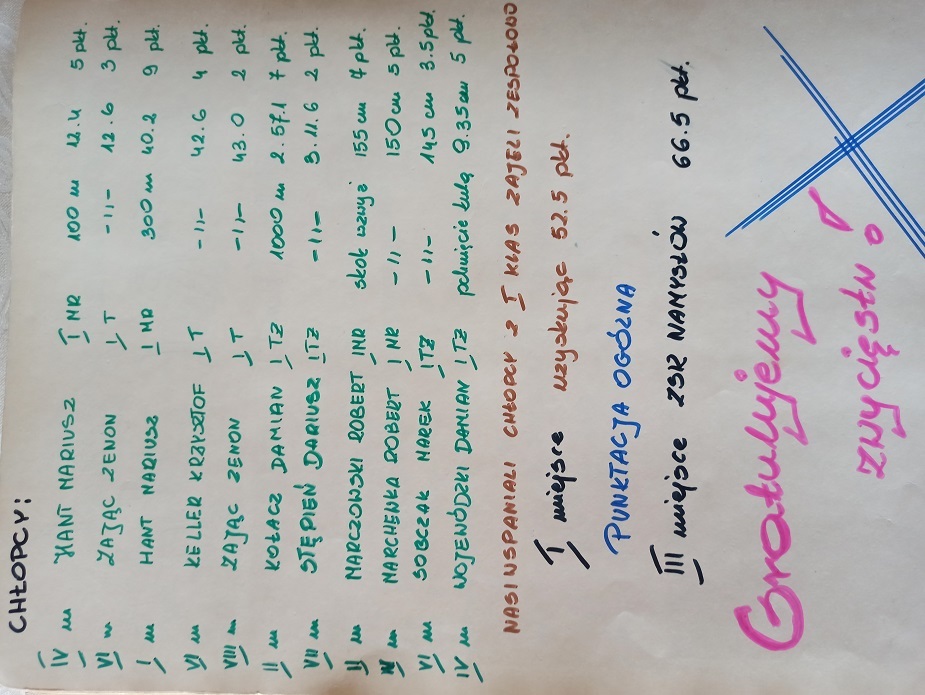 CHŁOPCY:
IV m HANT MARIUSZ I MR 100 m 12.4 5 pkt.
VI m ZAJĄC ZENON I T -11- 12.6 3 pkt.
I m HANT MARIUSZ I MR 300 m 40.2 9 pkt.
VI m KELLER KRZYSZTOF I T -11- 42.6 4 pkt.
VIII m ZAJĄC ZENON I T -11- 43.0 2 pkt.
II m KOŁACZ DAMIAN I TZ 1000 m 2.57.1 7 pkt.
VII m STĘPIEŃ DARIUSZ I TZ -11- 3.11.6 2 pkt.
II m MARCZOWSKI ROBERT I MR skok wzwyż 155 cm 7 pkt.
IV m MARCHEWKA ROBERT I MR -11- 150 cm 5 pkt.
VI m SOBCZAK MAREK I TZ -11- 145 cm 3.5 pkt.
IV m WOJEWÓDZKI DAMIAN I TZ pchnięcie kulą 9.35 cm 5 pkt.
NASI WSPANIALI CHŁOPCY Z I KLAS ZAJĘLI ZESPOŁOWO
I miejsce uzyskując 52.5 pkt.
PUNKTACJA OGÓLNA
III miejsce ZSR NAMYSŁÓW 66.5 pkt.
Gratulujemy
ZWYCIĘSTW!